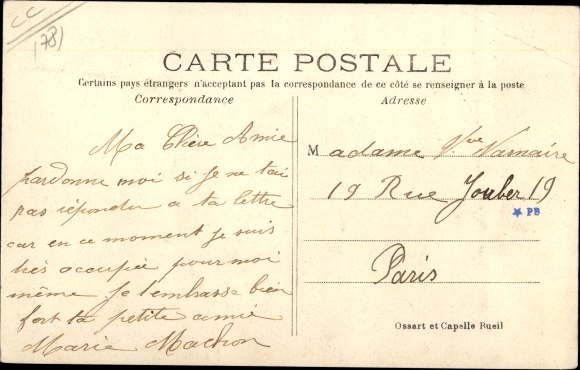 CC
(78)
CARTE POSTALE
Certains pays étrangers n'acceptant pas la correspondance de ce côté se renseigner à la poste
Correspondance
Adresse
Ma Chère Amie
pardonne moi si je ne tai
pas répondu a ta lettre
car en ce moment je suis
très occupée pour moi
même je t'embrasse bien
fort ta petite amie
Marie Machon
Madame Vve
19 Rue Jouber 19
PB
Paris
Ossart et Capelle Rueil